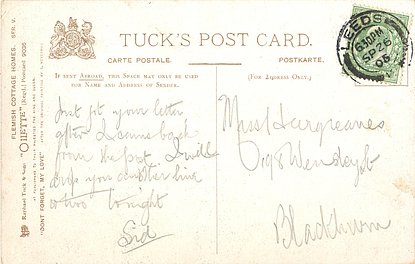 TUCK'S POST CARD.
CARTE POSTALE.
POSTKARTE.
IF SENT ABROAD, THIS SPACE MAY ONLY BE USED
FOR NAME AND ADDRESS OF SENDER.
(FOR ADDRESS ONLY.)
Just got your letter
after I came back
from the post. I will
drop you another line
or two tonight
Sid
Miss Hargreaves
Blackburn
LEEDS
6 30 PM
SP 26
05
FLEMISH COTTAGE HOMES. SER. V.
Raphael Tuck & Sons' "OILETTE" [Regd.] Postcard 9005
"DON'T FORGET, MY LOVE"